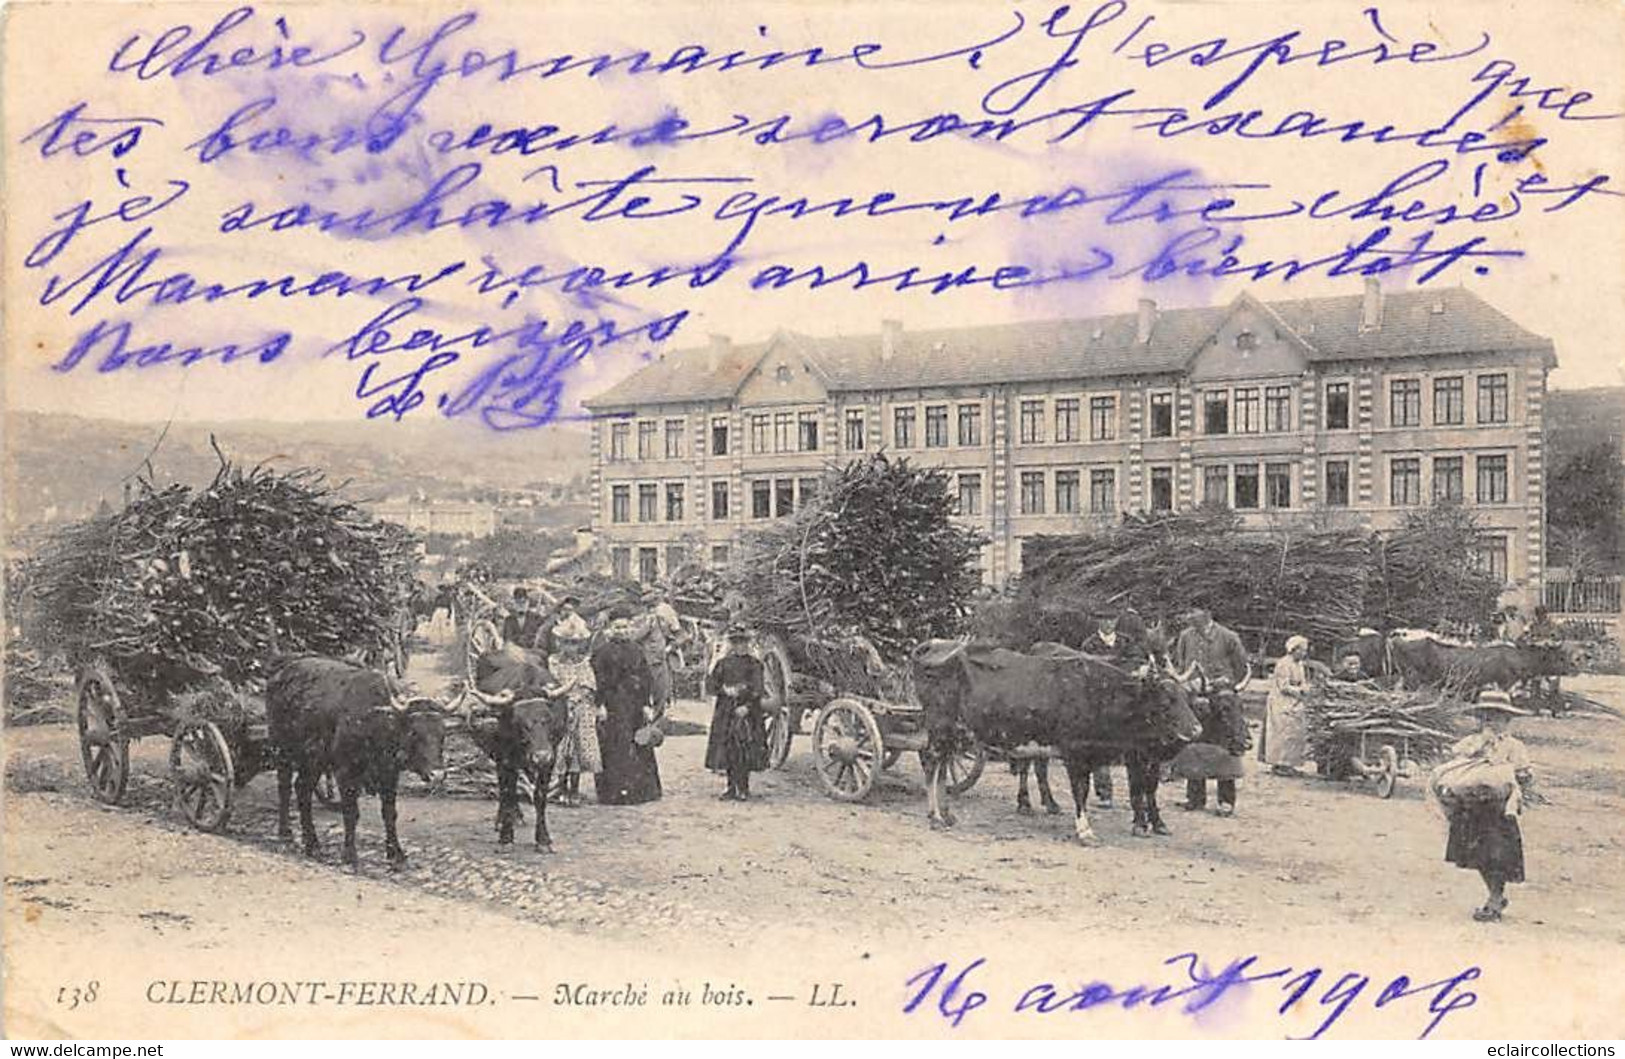 Chère Germaine. J'espère que
tes bons vœux seront exaucés et
je souhaite que notre chère
Maman nous arrive bientôt.
Bons baisers
L. Ph
138 CLERMONT-FERRAND. — Marché au bois. — LL.
16 août 1906
eclaircollections